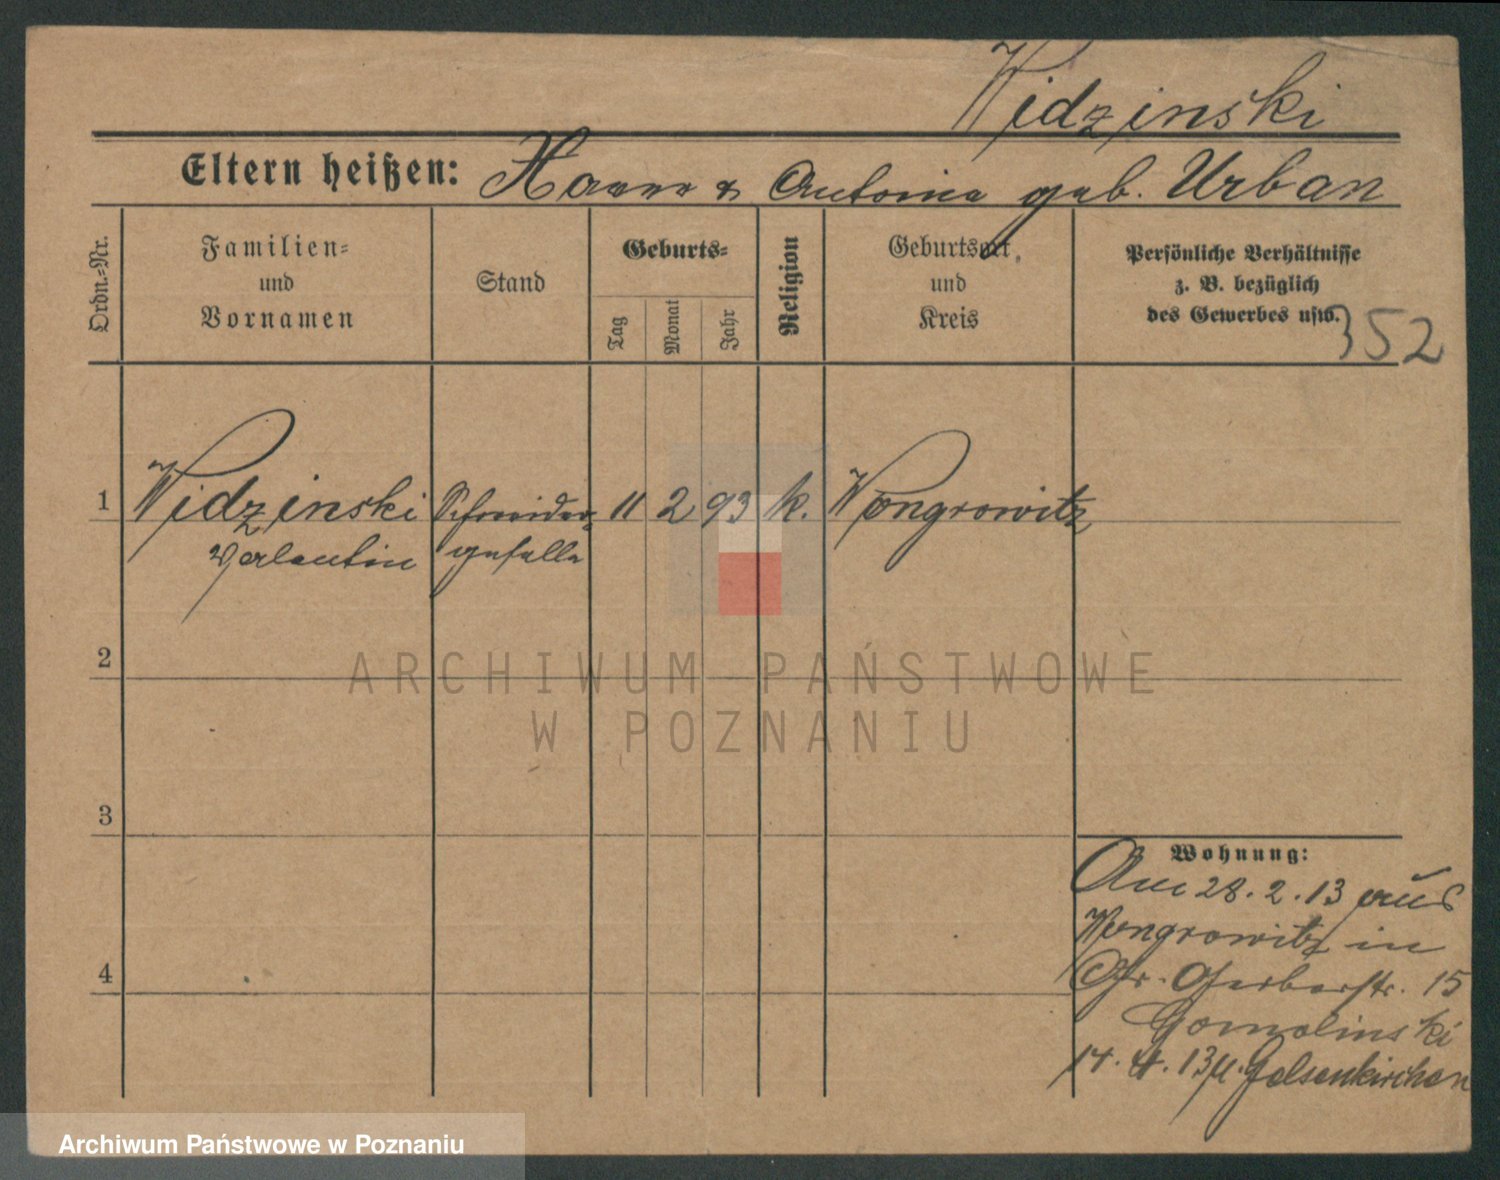 Widzinski
Eltern heißen: & Antonie geb. Urban
Ordn.-Nr.
Familien- und Vornamen
Stand
Geburts-
Tag
Monat
Jahr
Religion
Geburtsort und Kreis
Persönliche Verhältnisse
z. B. bezüglich
des Gewerbes usw.
352
1 Widzinski Schneider- 11 2 93 k. Wongrowitz
Valentin geselle
2
3
4
Wohnung:
Am 28. 2. 13 aus
Wongrowitz in
Gr. Gerberstr. 15
Gomolinski
14. 4. 13 n. Gelsenkirchen
ARCHIWUM PAŃSTWOWE
W POZNANIU
Archiwum Państwowe w Poznaniu